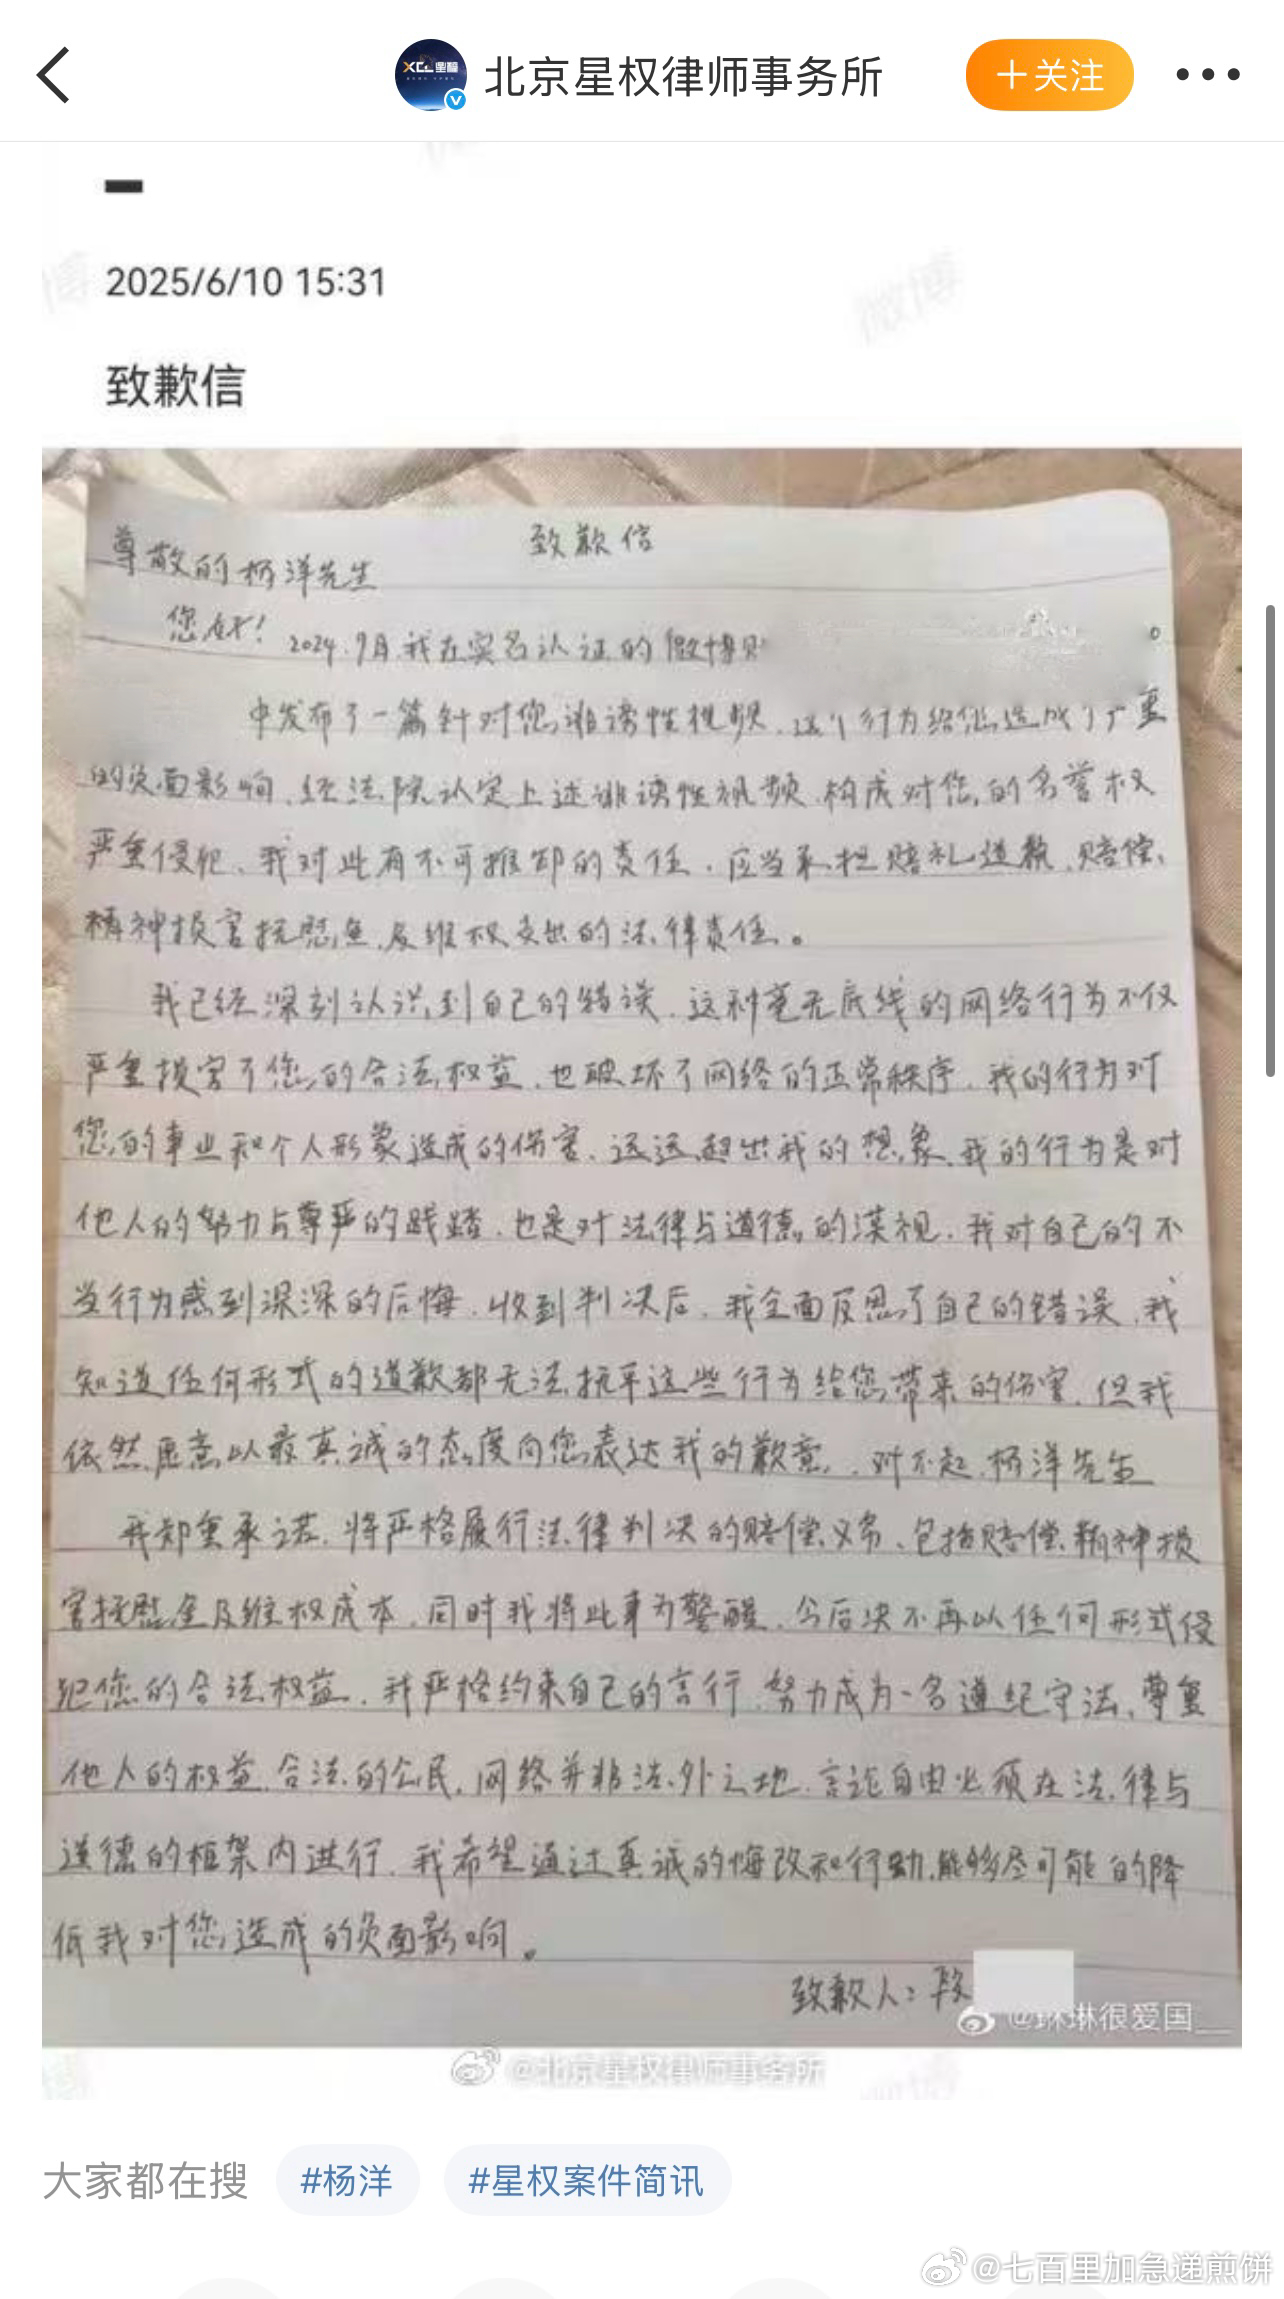 XCL 星權
北京星权律师事务所
+关注
2025/6/10 15:31
致歉信
致歉信
尊敬的杨洋先生
您好！2024.9月.我在实名认证的微博账
中发布了一篇针对您诽谤性视频.这个行为给您造成了严重
的负面影响、经法院认定上述诽谤性视频.构成对您的名誉权
严重侵犯、我对此有不可推卸的责任.应当承担赔礼道歉、赔偿、
精神损害抚慰金、及维权支出的法律责任。
我已经深刻认识到自己的错误.这种毫无底线的网络行为不仅
严重损害了您的合法权益.也破坏了网络的正常秩序.我的行为对
您的事业和个人形象造成的伤害.远远超出我的想象.我的行为是对
他人的努力与尊严的践踏.也是对法律与道德的漠视.我对自己的不
当行为感到深深的后悔.收到判决后.我全面反思了自己的错误.我
知道任何形式的道歉都无法抚平这些行为给您带来的伤害.但我
依然愿意以最真诚的态度向您表达我的歉意.对不起.杨洋先生
我郑重承诺.将严格履行法律判决的赔偿义务、包括赔偿.精神损
害抚慰金及维权成本.同时我将此事为警醒.今后决不再以任何形式侵
犯您的合法权益.我严格约束自己的言行.努力成为一名遵纪守法、尊重
他人的权益.合法的公民.网络并非法外之地.言论自由必须在法律与
道德的框架内进行.我希望通过真诚的悔改和行动.能够尽可能的降
低我对您造成的负面影响。
致歉人：段
@琳琳很爱国__
@北京星权律师事务所
大家都在搜 #杨洋 #星权案件简讯
@七百里加急递煎饼